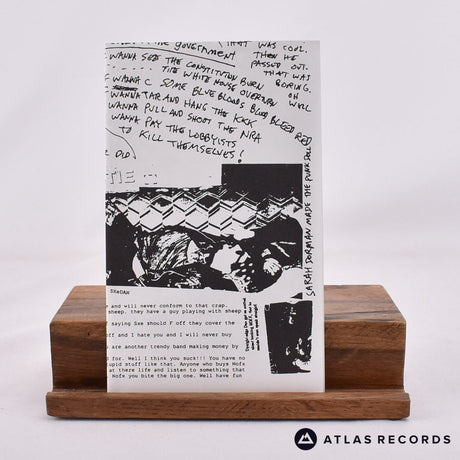 THE GOVERNMENT
THAT WAS COOL.
THEN HE
PASSED OUT.
THAT WAS
BORING.
OH
WELL
WANNA SEE THE CONSTITUTION BURN
THE WHITE HOUSE OVERTURN
WANNA C SOME BLUE BLOODS BLOOD BLEED RED
WANNA TAR AND HANG THE KKK
WANNA PULL AND SHOOT THE NRA
WANNA PAY THE LOBBYISTS
TO KILL THEMSELVES!
OLD
SARAH DORMAN MADE THE PUNK DOLL
SXeDAN
and will never conform to that crap.
sheep. they have a guy playing with sheep
saying Sxe should F off they cover the
off and I hate you and I will never buy
are another trendy band making money by
d for. Well I think you suck!!! You have no
upid stuff like that. Anyone who buys Nofx
at there life and listen to something that
Nofx you bite the big one. Well have fun
ATLAS RECORDS